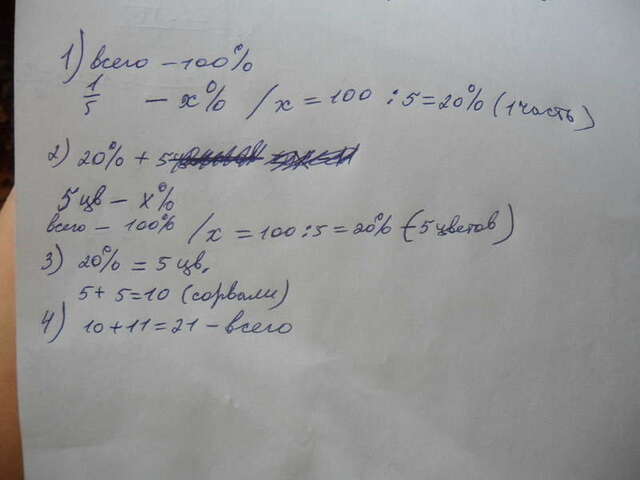 1) всего – 100%
1/5 – х% / х = 100 : 5 = 20% (1 часть)
2) 20% + 5
5 цв – х%
всего – 100% / х = 100 : 5 = 20% (– 5 цветов)
3) 20% = 5 цв.
5 + 5 = 10 (сорвали)
4) 10 + 11 = 21 – всего